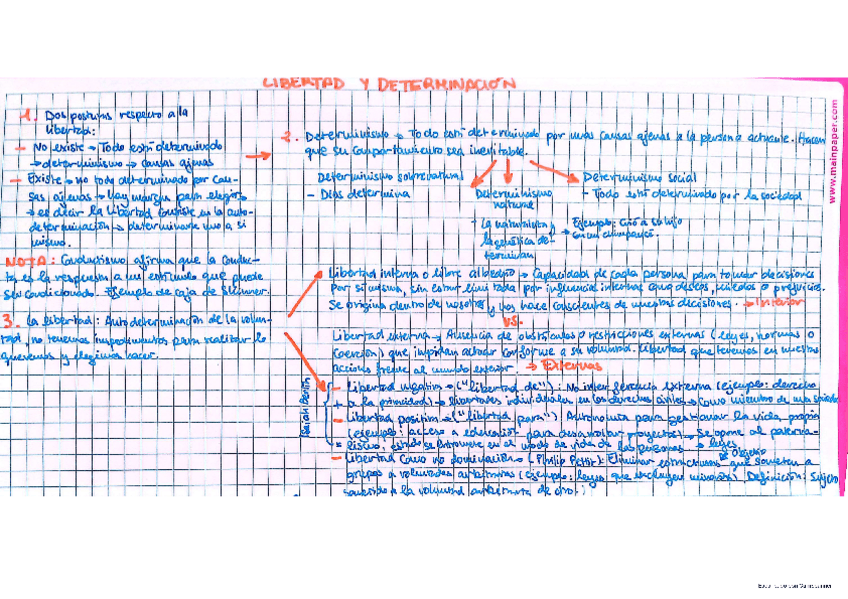 LIBERTAD Y DETERMINACIÓN
1. Dos posturas respecto a la
libertad:
- No existe → Todo está determinado
→ determinismo → causas ajenas
- Existe → no todo determinado por cau-
sas ajenas → hay margen para elegir
→ es decir la libertad consiste en la auto-
determinación → determinarse uno a sí
mismo.
NOTA: Conductismo afirma que la conduc-
ta es la respuesta a un estímulo que puede
ser condicionado. Ejemplo de caja de Skinner.
3. La libertad: Autodeterminación de la volun-
tad, no tenemos impedimentos para realizar lo
queremos y elegimos hacer.
2. Determinismo → Todo está determinado por unas causas ajenas a la persona actuante. Hacen
que su comportamiento sea inevitable.
Determinismo sobrenatural
- Dios determina
Determinismo
natural
- La naturaleza y
la genética de-
terminan
→ Ejemplo: crió a su hijo
con un chimpancé.
Determinismo social
- Todo está determinado por la sociedad
Libertad interna o libre albedrío → Capacidad de cada persona para tomar decisiones
por sí misma, sin estar limitada por influencias internas como deseos, miedos o prejuicios.
Se origina dentro de nosotros y nos hace conscientes de nuestras decisiones. → Interior
VS.
Libertad externa → Ausencia de obstáculos o restricciones externas (leyes, normas o
coerción) que impidan actuar conforme a su voluntad. Libertad que tenemos en nuestras
acciones frente al mundo exterior. → Externas
Isaiah Berlin
- Libertad negativa → ("libertad de"): No interferencia externa (ejemplo: derecho
a la privacidad) → libertades individuales en los derechos civiles → como miembro de una sociedad
- Libertad positiva → ("libertad para") Autonomía para gestionar la vida propia
(ejemplo: acceso a educación para desarrollar proyectos) → Se opone al paterna-
lismo, estado se entromete en el modo de vida de las personas → leyes
- Libertad como no dominación → (Philip Pettit): Eliminar estructuras que someten a
grupos a voluntades arbitrarias (ejemplo: leyes que excluyen minorías) Definición: Sujeto
sometido a la voluntad arbitraria de otro.
www.mainpaper.com